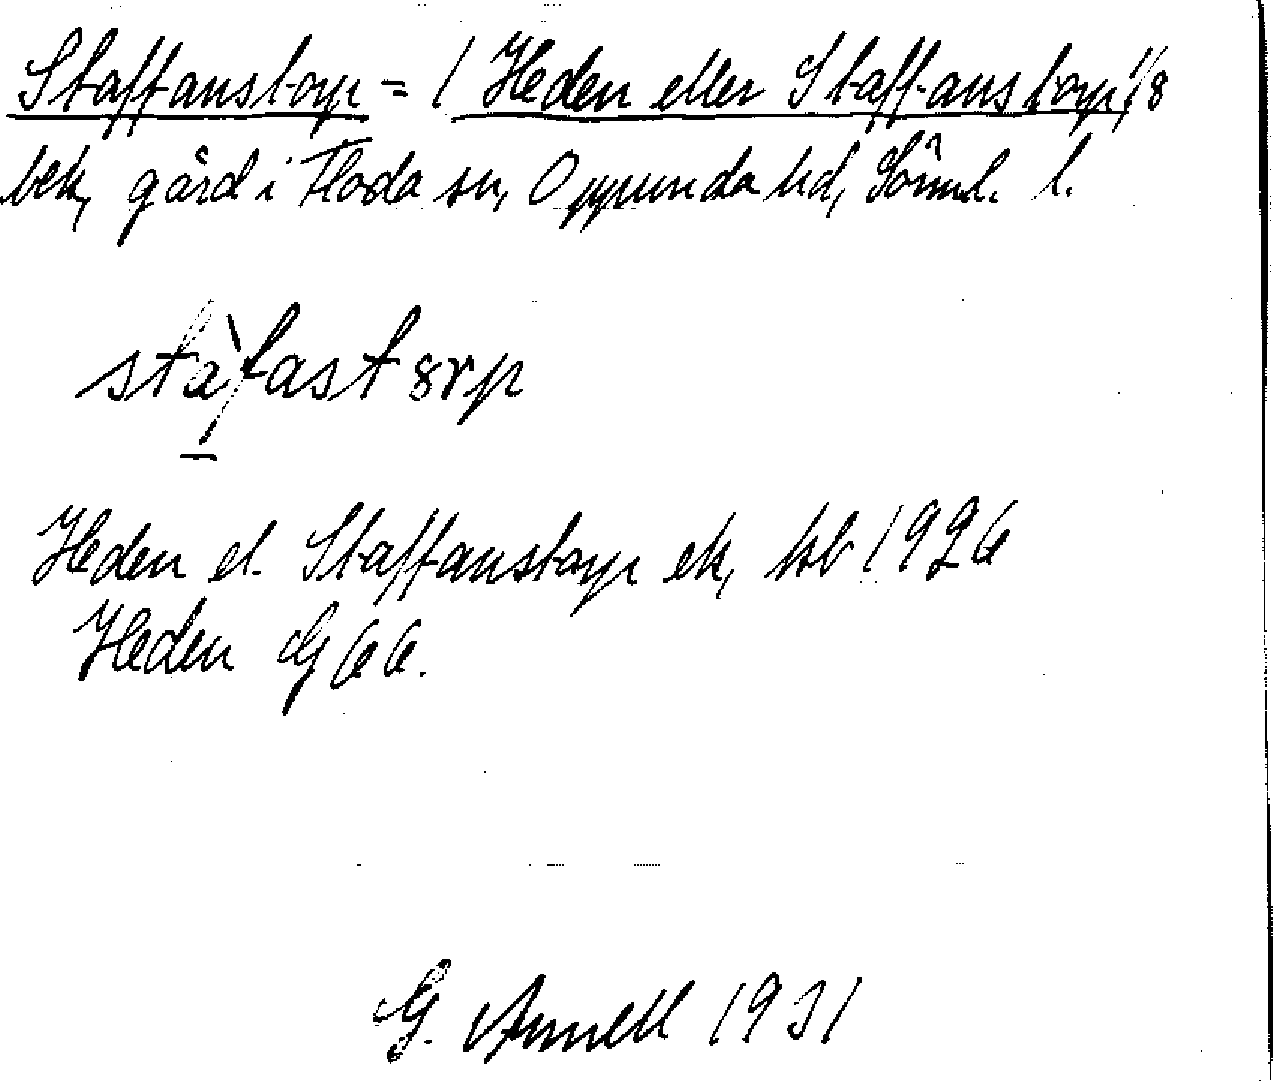 Staffanstorp = ( Heden eller Staffanstorp, 1/8
bek, gård i Floda sn, Oppunda hd, Söml. l.
stàfastɜrp
Heden el. Staffanstorp ek, hsb 1926
Heden G 66.
G. Arnell 1931